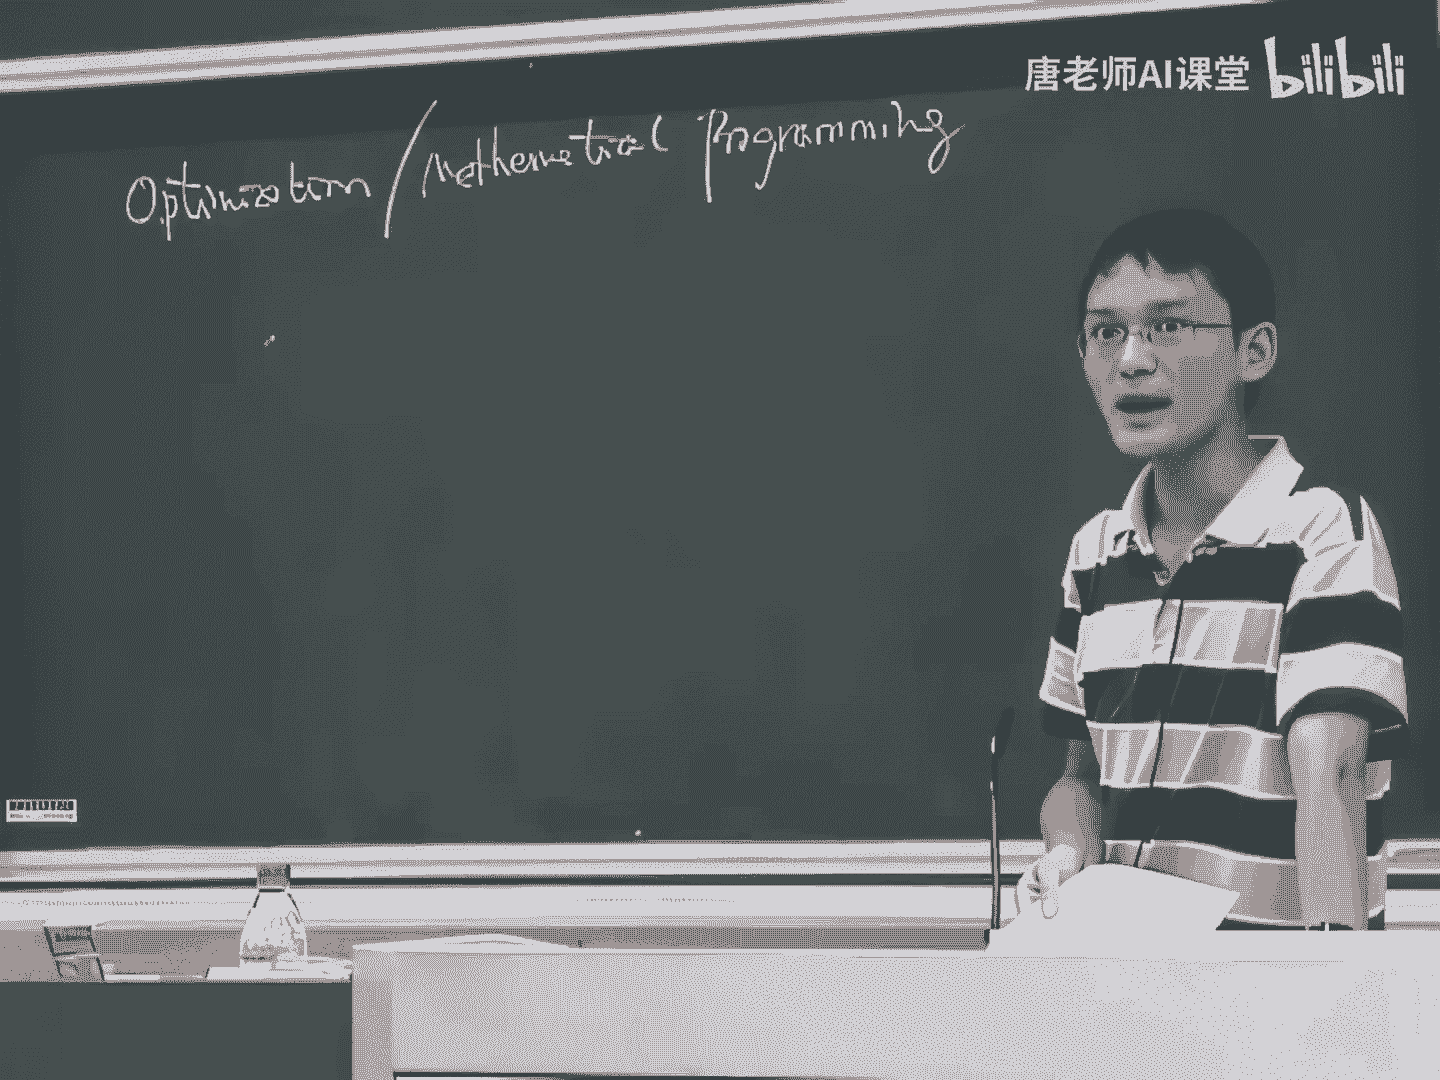 唐老师AI课堂 bilibili
Optimization / Mathematical Programming